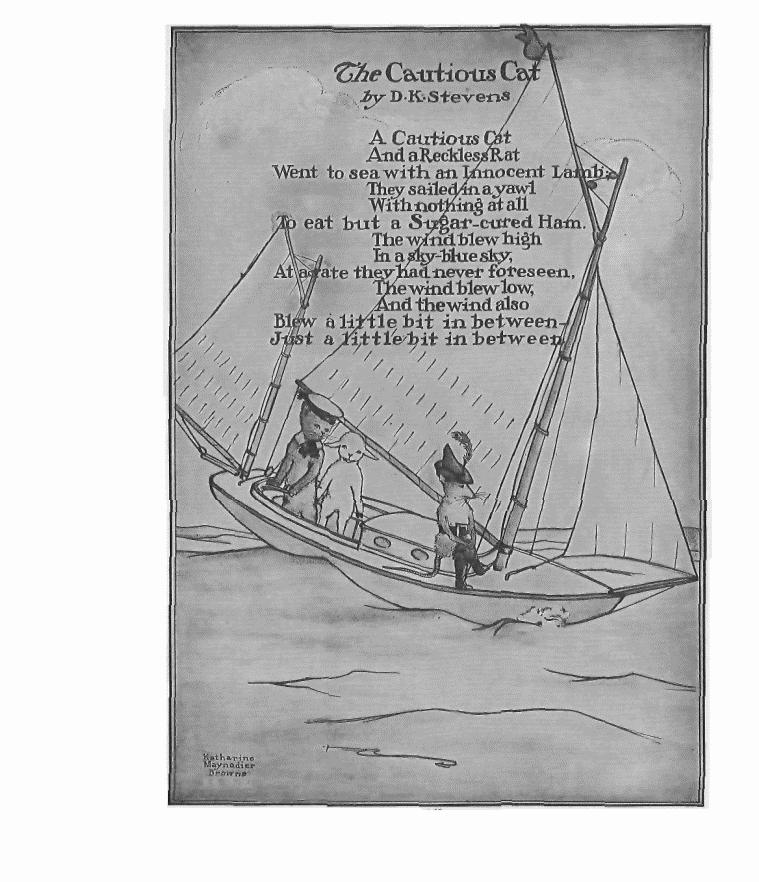 The Cautious Cat
by D.K.Stevens
A Cautious Cat
And a Reckless Rat
Went to sea with an Innocent Lamb;
They sailed in a yawl
With nothing at all
To eat but a Sugar-cured Ham.
The wind blew high
In a sky-blue sky,
At a rate they had never foreseen,
The wind blew low,
And the wind also
Blew a little bit in between-
Just a little bit in between.
Katharine
Maynadier
Browne